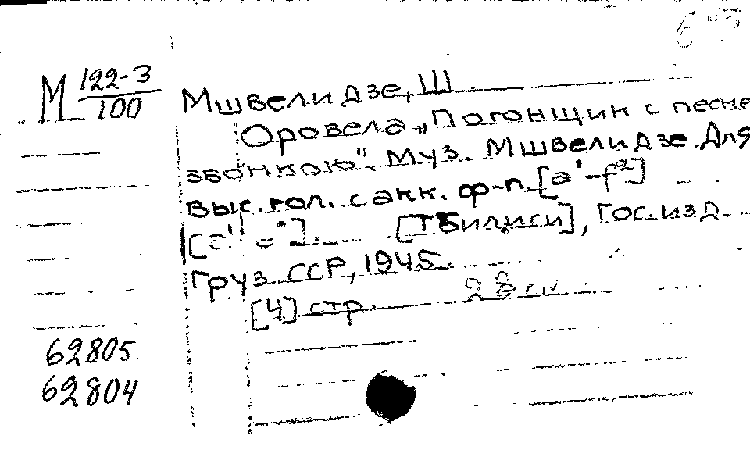 М 122-3/100
Мшвелидзе, Ш
Оровела „Погонщик с песне
звонкою". Муз. Мшвелидзе. Для
выс. гол. с акк. ф-п. [a¹-f²]
[Тбилиси], Гос. изд.
Груз. ССР, 1945.
[4] стр. 28 см
62805
62804